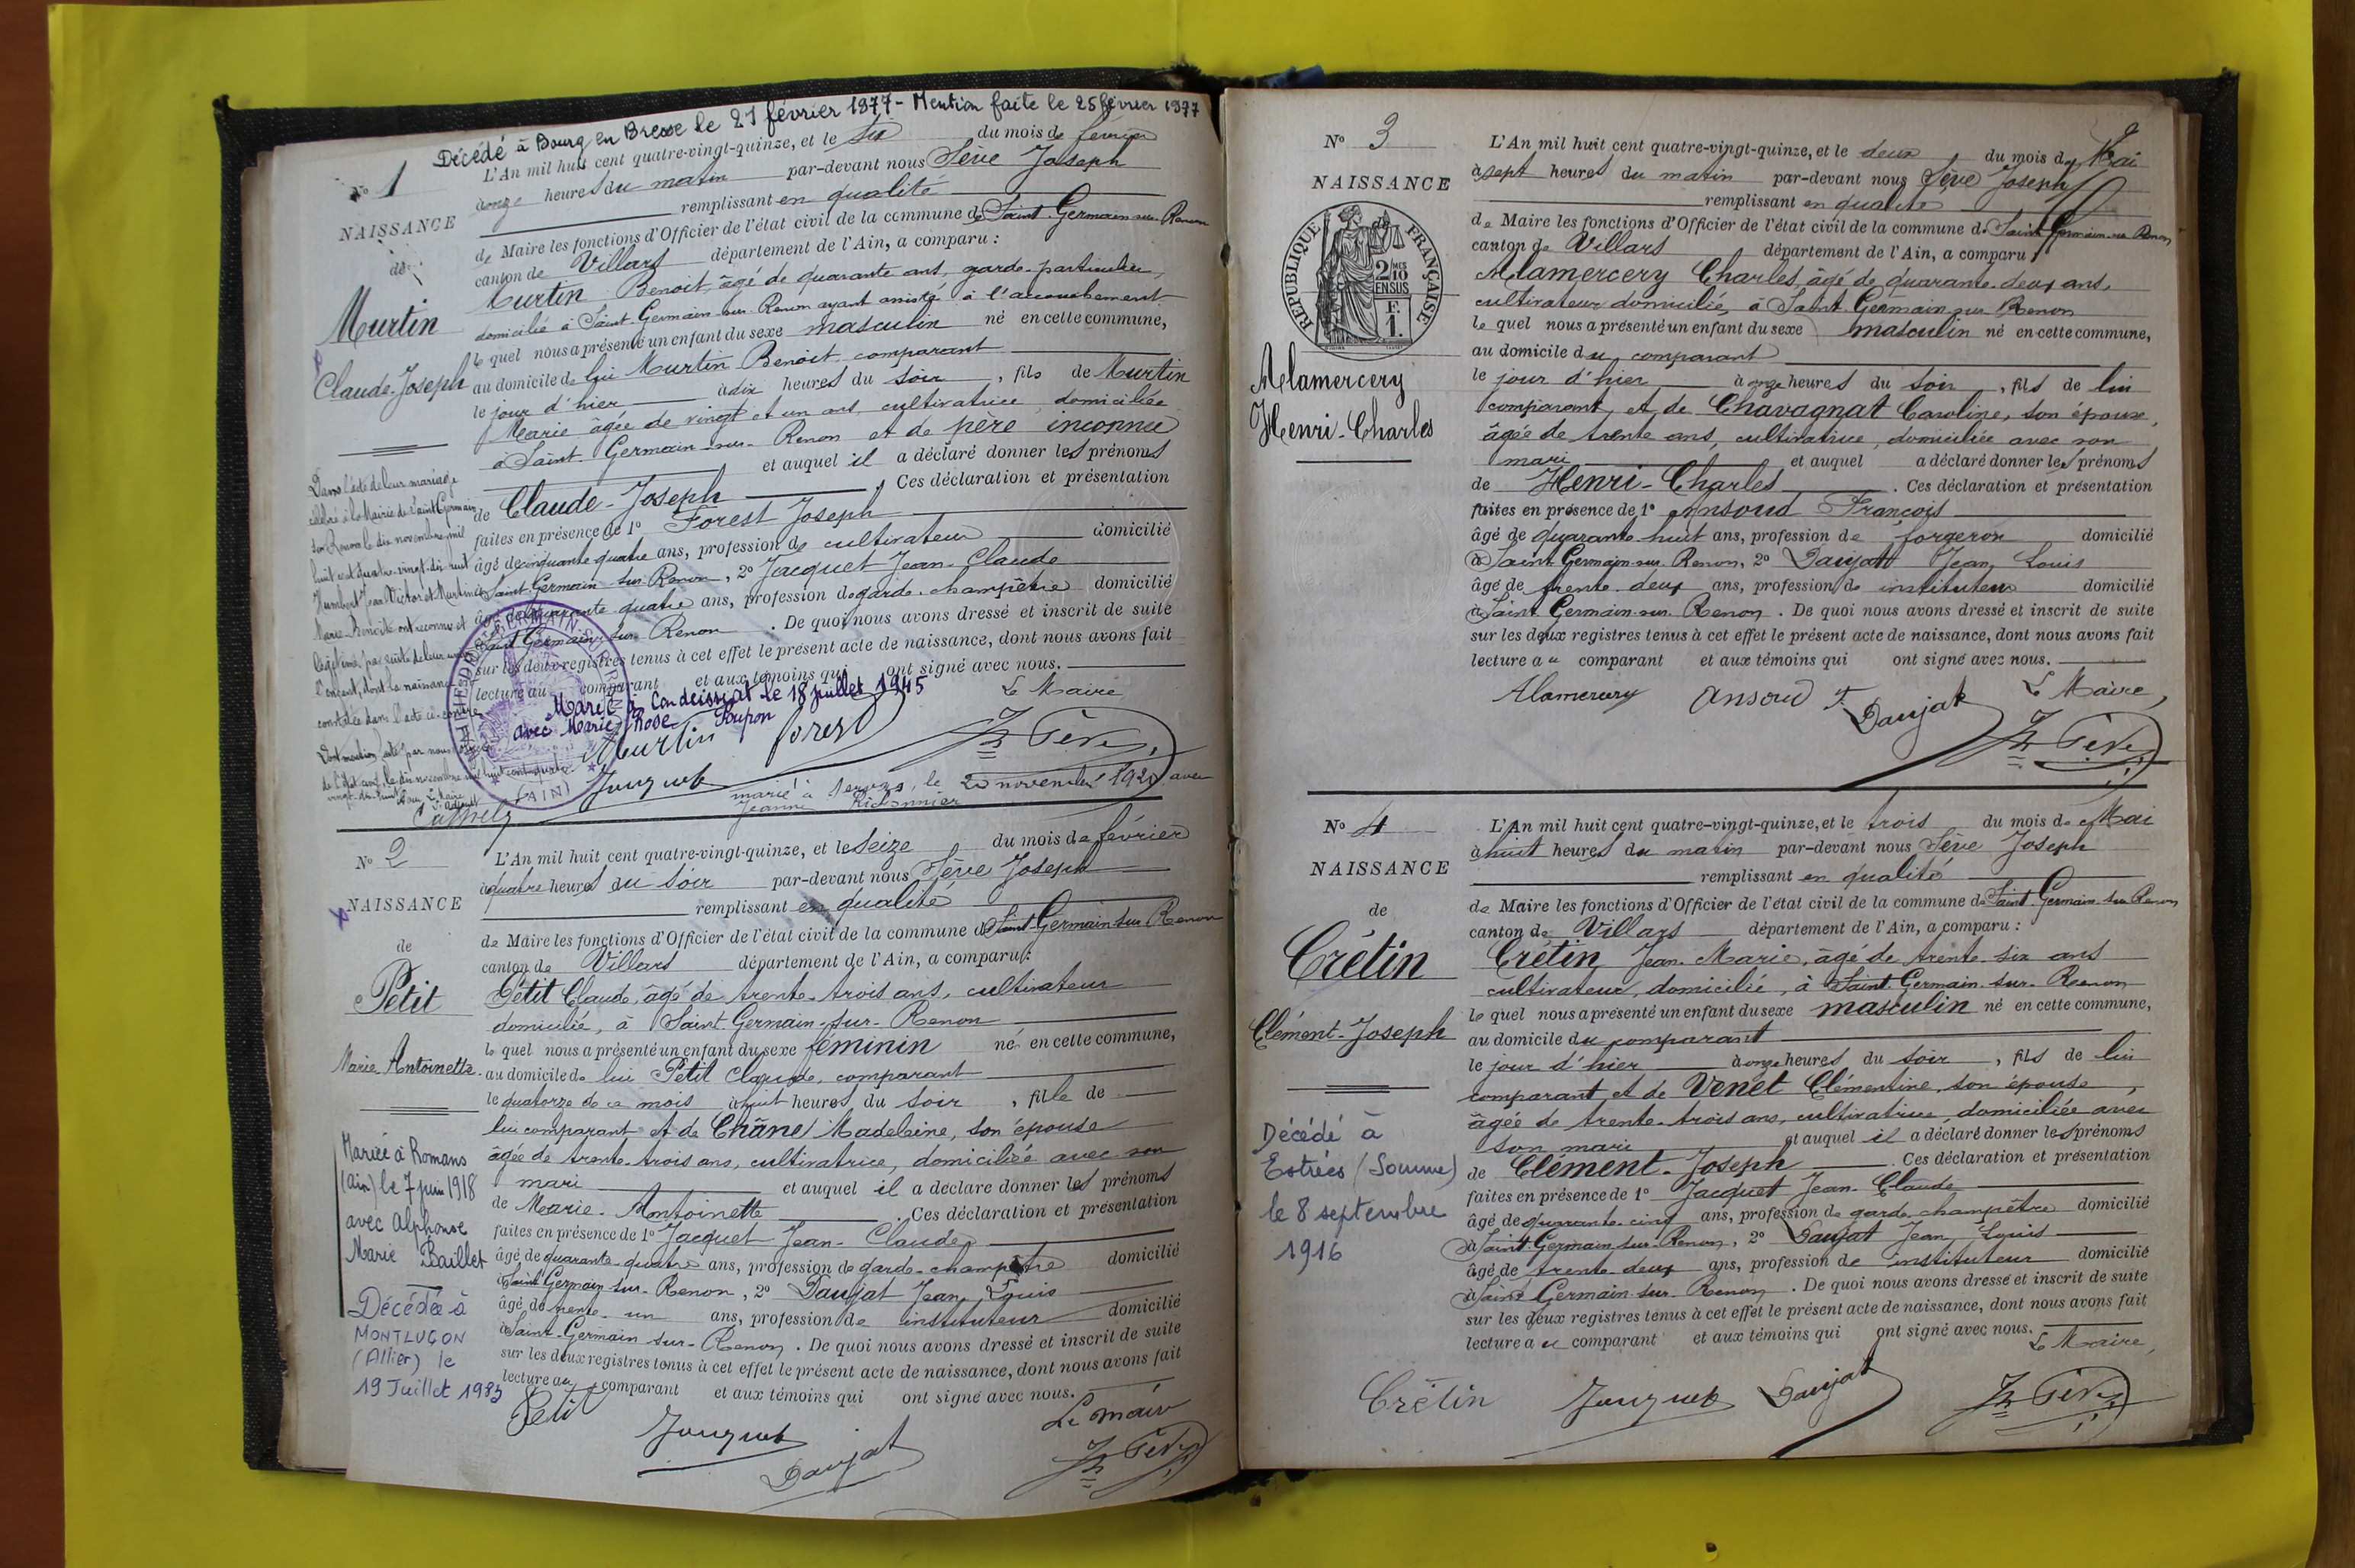 Décédé à Bourg en Bresse le 21 février 1977 - Mention faite le 25 février 1977
N° 1
NAISSANCE
de
Murtin
Claude-Joseph
L'An mil huit cent quatre-vingt-quinze, et le six du mois de février
à onze heures du matin par-devant nous Sève Joseph
remplissant en qualité
de Maire les fonctions d'Officier de l'état civil de la commune de Saint-Germain-sur-Renon
canton de Villars département de l'Ain, a comparu :
Murtin Benoit, âgé de quarante ans, garde-particulier,
domicilié à Saint-Germain-sur-Renon ayant assisté à l'accouchement
le quel nous a présenté un enfant du sexe masculin né en cette commune,
au domicile de lui Murtin Benoit comparant
le jour d'hier à dix heures du soir, fils de Murtin
Marie âgée de vingt et un ans, cultivatrice, domiciliée
à Saint-Germain-sur-Renon et de père inconnu
et auquel il a déclaré donner les prénoms
de Claude-Joseph. Ces déclaration et présentation
faites en présence de 1° Forest Joseph
âgé de cinquante quatre ans, profession de cultivateur domicilié
à Saint-Germain-sur-Renon, 2° Jacquet Jean-Claude
âgé de quarante quatre ans, profession de garde-champêtre domicilié
à Saint-Germain-sur-Renon. De quoi nous avons dressé et inscrit de suite
sur les deux registres tenus à cet effet le présent acte de naissance, dont nous avons fait
lecture au comparant et aux témoins qui ont signé avec nous.
Le Maire
Marié à Condeissiat le 18 juillet 1945
avec Marie Rose Pupon
Murtin Forest
Jacquet Jh Sève
marié à Servas, le 20 novembre avec
Jeanne
Dans l'acte de leur mariage
célébré à la Mairie de Saint Germain
sur Renon le dix novembre mil
huit cent quatre-vingt-dix huit
Humbert Jean Victor et Murtin
Marie Benoite ont reconnu et
légitimé par suite de leur
l'enfant, dont la naissance est
constatée dans l'acte ci-contre
Dont mention faite par nous
de l'Etat civil, le dix novembre mil huit cent quatre
vingt-dix-huit
N° 2
NAISSANCE
de
Petit
Marie-Antoinette
L'An mil huit cent quatre-vingt-quinze, et le seize du mois de février
à quatre heures du soir par-devant nous Sève Joseph
remplissant en qualité
de Maire les fonctions d'Officier de l'état civil de la commune de Saint-Germain-sur-Renon
canton de Villars département de l'Ain, a comparu :
Petit Claude, âgé de trente-trois ans, cultivateur
domicilié, à Saint-Germain-sur-Renon
le quel nous a présenté un enfant du sexe féminin né en cette commune,
au domicile de lui Petit Claude, comparant
le quatorze de ce mois à huit heures du soir, fille de
lui comparant et de Chânel Madeleine, son épouse
âgée de trente-trois ans, cultivatrice, domiciliée avec son
mari et auquel il a déclaré donner les prénoms
de Marie-Antoinette. Ces déclaration et présentation
faites en présence de 1° Jacquet Jean-Claude
âgé de quarante-quatre ans, profession de garde-champêtre domicilié
à Saint-Germain-sur-Renon, 2° Daujat Jean Louis
âgé de trente-un ans, profession de instituteur domicilié
à Saint-Germain-sur-Renon. De quoi nous avons dressé et inscrit de suite
sur les deux registres tenus à cet effet le présent acte de naissance, dont nous avons fait
lecture au comparant et aux témoins qui ont signé avec nous.
Petit Jacquet Daujat Le Maire
Jh Sève
Mariée à Romans
(Ain) le 7 juin 1918
avec Alphonse
Marie Baillet
Décédée à
MONTLUÇON
(Allier) le
19 Juillet 1983
2
N° 3
NAISSANCE
RÉPUBLIQUE FRANÇAISE
2/10 MES
EN SUS
F.
1.
Alamercery
Henri-Charles
L'An mil huit cent quatre-vingt-quinze, et le deux du mois de Mai
à sept heures du matin par-devant nous Sève Joseph
remplissant en qualité
de Maire les fonctions d'Officier de l'état civil de la commune de Saint-Germain-sur-Renon
canton de Villars département de l'Ain, a comparu :
Alamercery Charles, âgé de quarante-deux ans,
cultivateur domicilié, à Saint-Germain-sur-Renon
le quel nous a présenté un enfant du sexe masculin né en cette commune,
au domicile du comparant
le jour d'hier à onze heures du soir, fils de lui
comparant et de Chavagnat Caroline, son épouse,
âgée de trente ans, cultivatrice, domiciliée avec son
mari et auquel a déclaré donner les prénoms
de Henri-Charles. Ces déclaration et présentation
faites en présence de 1° Ansoud François
âgé de quarante-huit ans, profession de forgeron domicilié
à Saint-Germain-sur-Renon, 2° Daujat Jean Louis
âgé de trente-deux ans, profession de instituteur domicilié
à Saint-Germain-sur-Renon. De quoi nous avons dressé et inscrit de suite
sur les deux registres tenus à cet effet le présent acte de naissance, dont nous avons fait
lecture au comparant et aux témoins qui ont signé avec nous.
Alamercery Ansoud F. Daujat Le Maire,
Jh Sève
N° 4
NAISSANCE
de
Crétin
Clément-Joseph
L'An mil huit cent quatre-vingt-quinze, et le trois du mois de Mai
à huit heures du matin par-devant nous Sève Joseph
remplissant en qualité
de Maire les fonctions d'Officier de l'état civil de la commune de Saint-Germain-sur-Renon
canton de Villars département de l'Ain, a comparu :
Crétin Jean-Marie, âgé de trente-six ans
cultivateur, domicilié, à Saint-Germain-sur-Renon
le quel nous a présenté un enfant du sexe masculin né en cette commune,
au domicile du comparant
le jour d'hier à onze heures du soir, fils de lui
comparant et de Venet Clémentine, son épouse,
âgée de trente-trois ans, cultivatrice, domiciliée avec
son mari et auquel il a déclaré donner les prénoms
de Clément-Joseph. Ces déclaration et présentation
faites en présence de 1° Jacquet Jean-Claude
âgé de quarante-cinq ans, profession de garde champêtre domicilié
à Saint-Germain-sur-Renon, 2° Daujat Jean Louis
âgé de trente-deux ans, profession de instituteur domicilié
à Saint-Germain-sur-Renon. De quoi nous avons dressé et inscrit de suite
sur les deux registres tenus à cet effet le présent acte de naissance, dont nous avons fait
lecture au comparant et aux témoins qui ont signé avec nous.
Le Maire,
Crétin Jacquet Daujat Jh Sève
Décédé à
Estrées (Somme)
le 8 septembre
1916